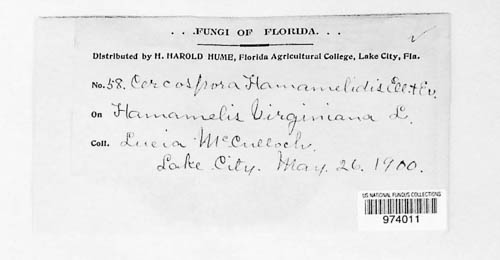 ...FUNGI OF FLORIDA...
Distributed by H. HAROLD HUME, Florida Agricultural College, Lake City, Fla.
No. 58. Cercospora Hamamelidis Ell. & Ev.
On Hamamelis Virginiana L.
Coll. Lucia McCulloch.
Lake City. May. 26. 1900.
US NATIONAL FUNGUS COLLECTIONS
974011